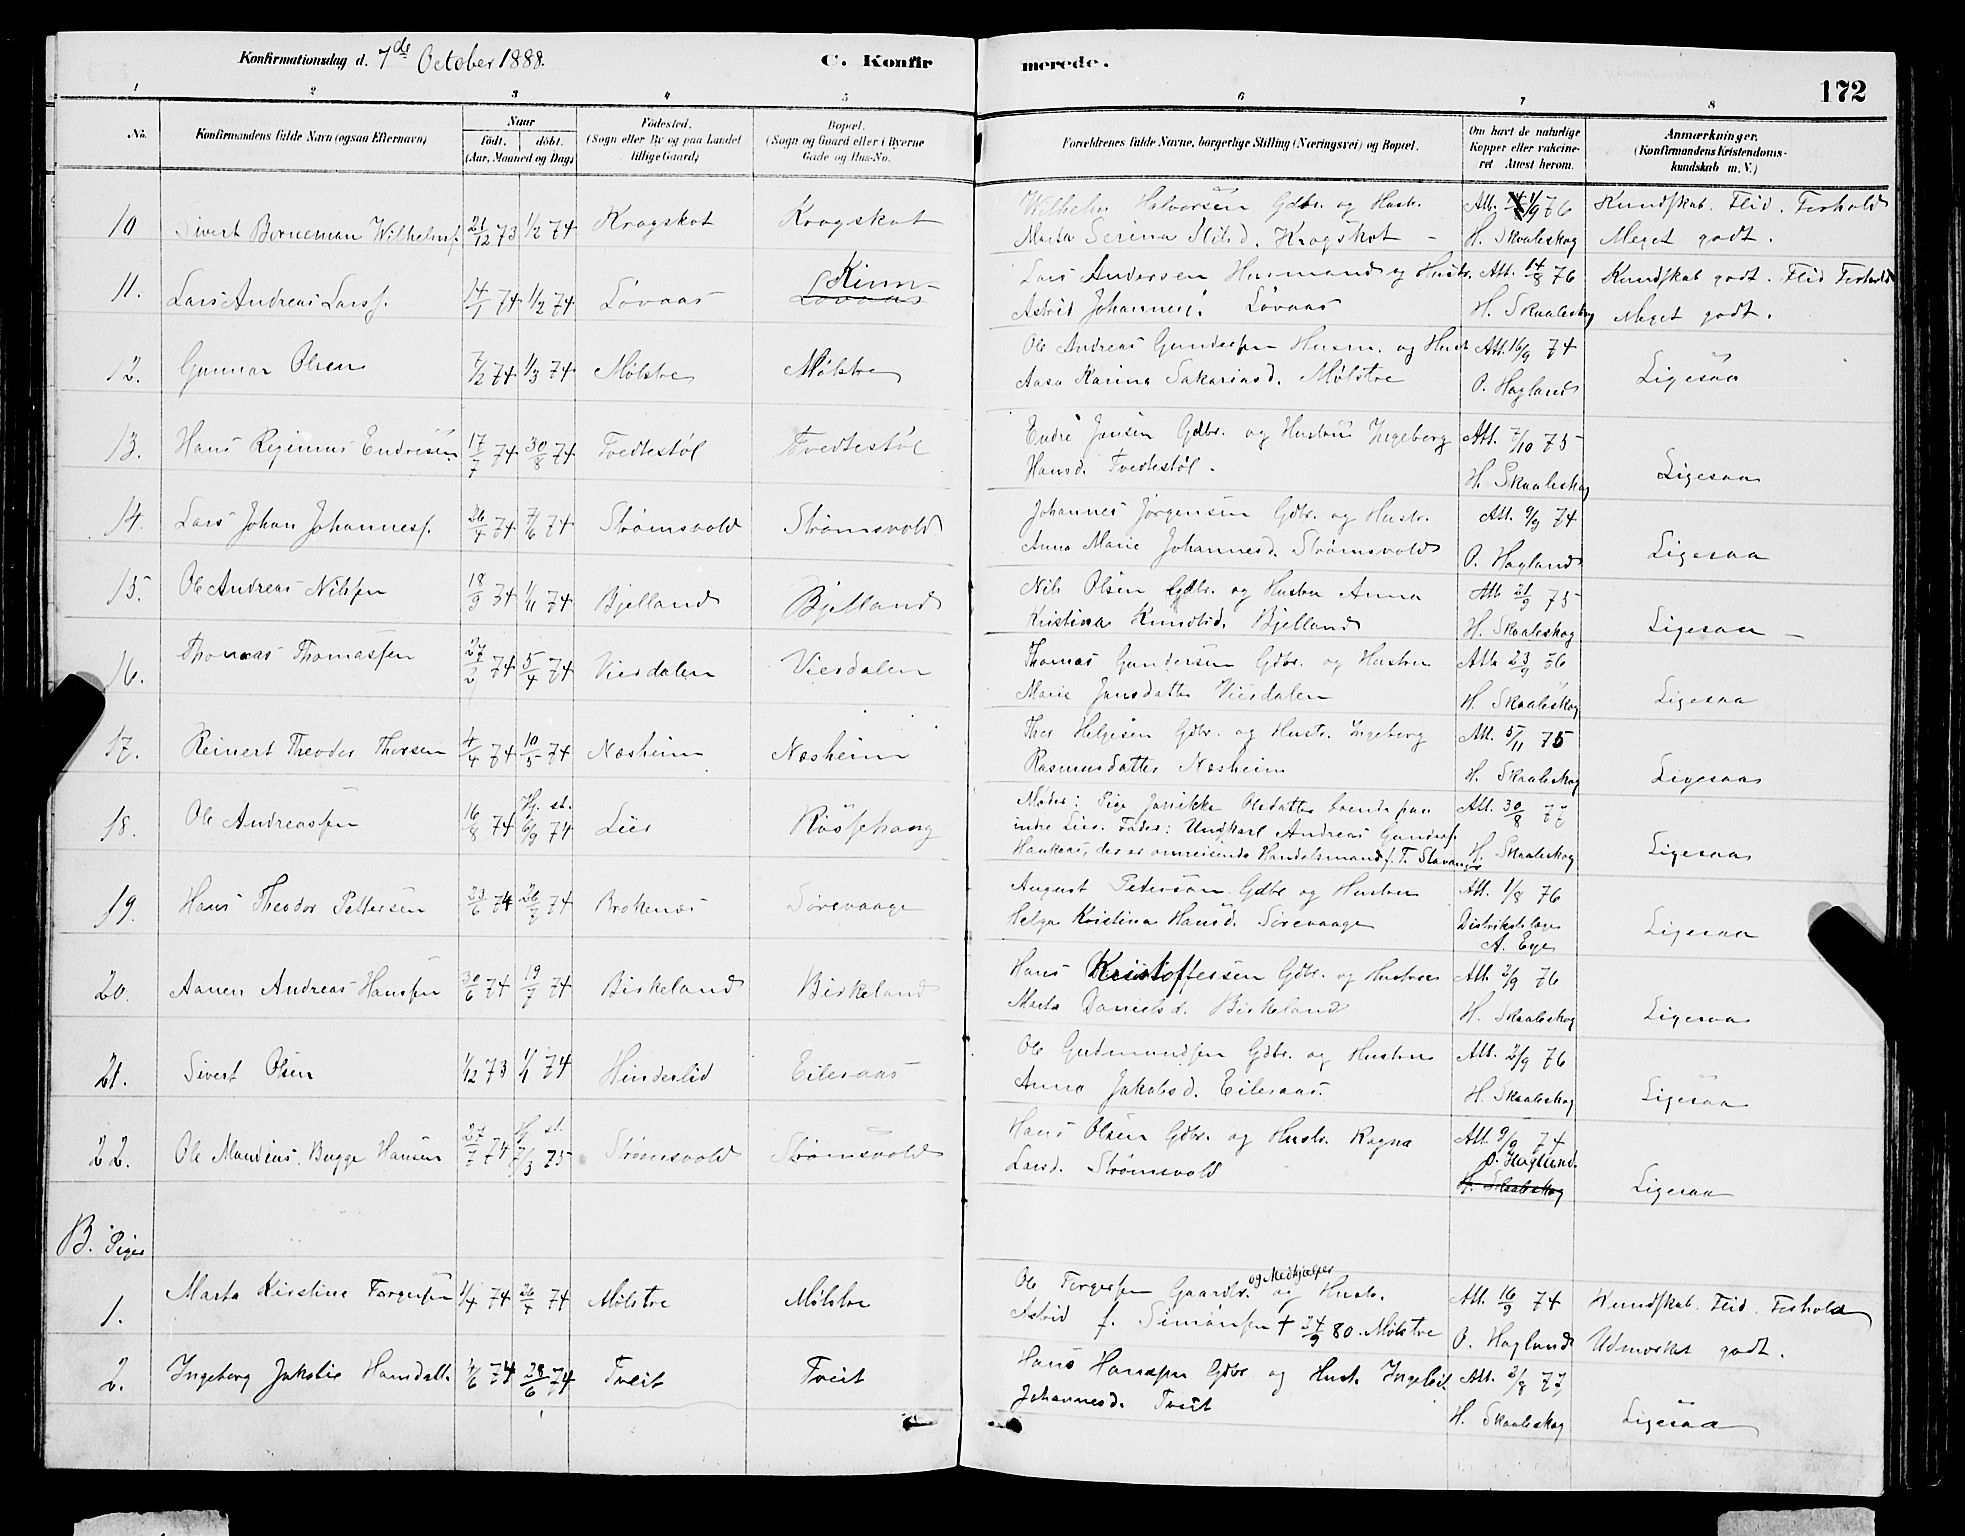 Konfirmationsdag d. 7de October 1888. C. Konfirmerede. 172
1 2 3 4 5 6 7 8
No. Konfirmandens fulde Navn (ogsaa Efternavn) Naar født, døbt. (Aar, Maaned og Dag) Fødested. (Sogn eller By og paa Landet tillige Gaard) Bopæl. (Sogn og Gaard eller i Byerne Gade og Hus-No. Forældrenes fulde Navne, borgerlige Stilling (Næringsvei) og Bopæl. Om havt de naturlige Kopper eller vakcineret Attest herom. Anmærkninger. (Konfirmandens Kristendomskundskab m. V.)
10 Sivert Borneman Wilhelms. 21/12 73 1/2 74 Kragskot Kragskot Wilhelm Halvorsen Gdbr. og Hustr. Att. 1/9 76 Kundskab. Flid. Forhold
Marta Serina Nilsd. Kragskot - H. Skaaleskog Meget godt.
11. Lars Andreas Larss. 14/1 74 1/2 74 Løvaas Løvaas Kinn- Lars Andersen Husmand og Hustr. Att. 14/8 76 Kundskab godt. Flid Forhold
Astrid Johannesd. Løvaas H. Skaaleskog Meget godt.
12. Gunnar Olsen 7/2 74 1/3 74 Mølstre Mølstre Ole Andreas Gundersen Husm. og Hustr Att. 16/9 74
Aasa Karina Sakariasd. Mølstre O. Hagland Ligesaa
13. Hans Reginius Endresen 17/7 74 30/8 74 Tvedtestøl Tvedtestøl Endre Jansen Gdbr. og Hustru Ingeborg Att. 7/10 75
Hansd. Tvedtestøl. H. Skaaleskog Ligesaa
14. Lars Johan Johanness. 26/4 74 7/6 74 Strømsvold Strømsvold Johannes Jørgensen Gdbr. og Hustr. Att. 9/9 74
Anna Marie Johannesd. Strømsvold O. Hagland Ligesaa
15. Ole Andreas Nilssen 18/9 74 1/11 74 Bjelland Bjelland Nils Olsen Gdbr. og Hustru Anna Att 21/9 75
Kristina Knudtsd. Bjelland H. Skaaleskog Ligesaa -
16. Thomas Thomassen 27/2 74 5/4 74 Viersdalen Viersdalen Thomas Gundersen Gdbr. og Hustru Att. 23/9 76
Marie Jansdatter Viersdalen H. Skaaleskog Ligesaa
17. Reinert Theodor Thorsen 4/4 74 10/5 74 Næsheim Næsheim Thor Helgesen Gdbr. og Hustr. Ingeborg Att. 5/11 75
Rasmusdatter Næsheim H. Skaaleskog Ligesaa
18. Ole Andreassen 16/8 74 Hj. st. 6/9 74 Lier Røsschaug Moder: Pige Jannikke Olsdatter boende paa Att. 30/8 77
indre Lier. Fader: Ungkarl Andreas Gunders.
Haukaas, der er omreisende Handelsmand f. T. Stavanger H. Skaaleskog Ligesaa
19. Hans Theodor Pettersen 23/6 74 26/7 74 Brokenæs Sørevaage August Petersen Gdbr og Hustru Att. 1/8 76
Helga Kristina Hansd. Sørevaage Distriktslæge
A. Eye Ligesaa
20. Aanen Andreas Hanssen 30/6 74 19/7 74 Birkeland Birkeland Hans Kristoffersen Gdbr. og Hustru Att. 2/9 76
Marta Danielsd. Birkeland H. Skaaleskog Ligesaa
21. Sivert Olsen 1/12 73 1/1 74 Hinderlid Eileraas Ole Gudmundsen Gdbr. og Hustru Att. 2/9 76
Anna Jakobsd. Eileraas. H. Skaaleskog Ligesaa
22. Ole Mandius Bugge Hansen 27/7 74 Hj st. 7/3 75 Strømsvold Strømsvold Hans Olsen Gdbr. og Hustr. Ragna Att. 9/9 74
Larsd. Strømsvold O. Hagland.
H. Skaaleskog Ligesaa
B. Piger
1. Marta Kirstine Torgersen 1/4 74 26/4 74 Mølstre Mølstre Ole Torgersen Gaardbr. og Medhjælper og Hustr. Att. 16/9 74 Kundskab. Flid. Forhold
Astrid f. Simonsen † 24/9 80. Mølstre O. Hagland Udmærket godt.
2. Ingeborg Jakobie Hansdatt. 4/6 74 28/6 74 Tveit Tveit Hans Hanssen Gdbr og Hust. Ingeleiv Att. 2/8 77
Johannesd. Tveit H. Skaaleskog Ligesaa